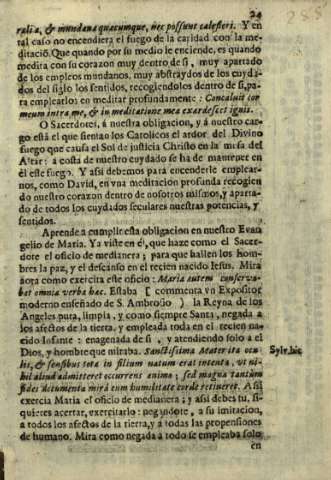 24
ralia, & mundana quæcumque, nec possunt calefieri. Y en
tal caso no encendiera el fuego de la caridad con la me-
ditació. Que quando por su medio le enciende, es quando
medita con su corazon muy dentro de si, muy apartado
de los empleos mundanos, muy abstraydos de los cuyda
dos del siglo los sentidos, recogiendolos dentro de si, pa-
ra emplearlos en meditar profundamente: Concaluit cor
meum intra me, & in meditatione mea exardescet ignis.
O Sacerdotes, á nuestra obligacion, y á nuestro car-
go está el que sientan los Catolicos el ardor del Divino
fuego que causa el Sol de justicia Christo en la mesa del
Altar: á costa de nuestro cuydado se ha de mantener en
él este fuego. Y asi debemos para encenderle emplear-
nos, como David, en vna meditacion profunda recogien
do nuestro corazon dentro de nosotros mismos, y aparta-
do de todos los cuydados seculares nuestras potencias, y
sentidos.
Aprende a cumplir esta obligacion en nuestro Evan
gelio de Maria. Ya viste en él, que haze como el Sacer-
dote el oficio de medianera; para que hallen los hom-
bres la paz, y el descanso en el recien nacido Jesus. Mira
aora como exercita este oficio: Maria autem conserva-
bat omnia verba hæc. Estaba [ commenta vn Expositor
moderno enseñado de S. Ambrosio ] la Reyna de los
Angeles pura, limpia, y como siempre Santa, negada a
los afectos de la tierra, y empleada toda en el recien na-
cido Infante: enagenada de si, y atendiendo solo a el
Dios, y hombre que miraba. Sanctissima Mater ita ocu-
lis, & sensibus tota in filium natum erat intenta, vt ni-
hil aliud admitteret occurrens animo; sed magna tantum
fidei documenta mira cum humilitate corde retineret. Asi
exercia Maria el oficio de medianera; y asi debes tu, si-
quieres acertar, exercitarlo: negandote, a su imitacion,
a todos los afectos de la tierra, y a todas las propensiones
de humano. Mira como negada a todo se empleaba solo
en
Sylv. hic